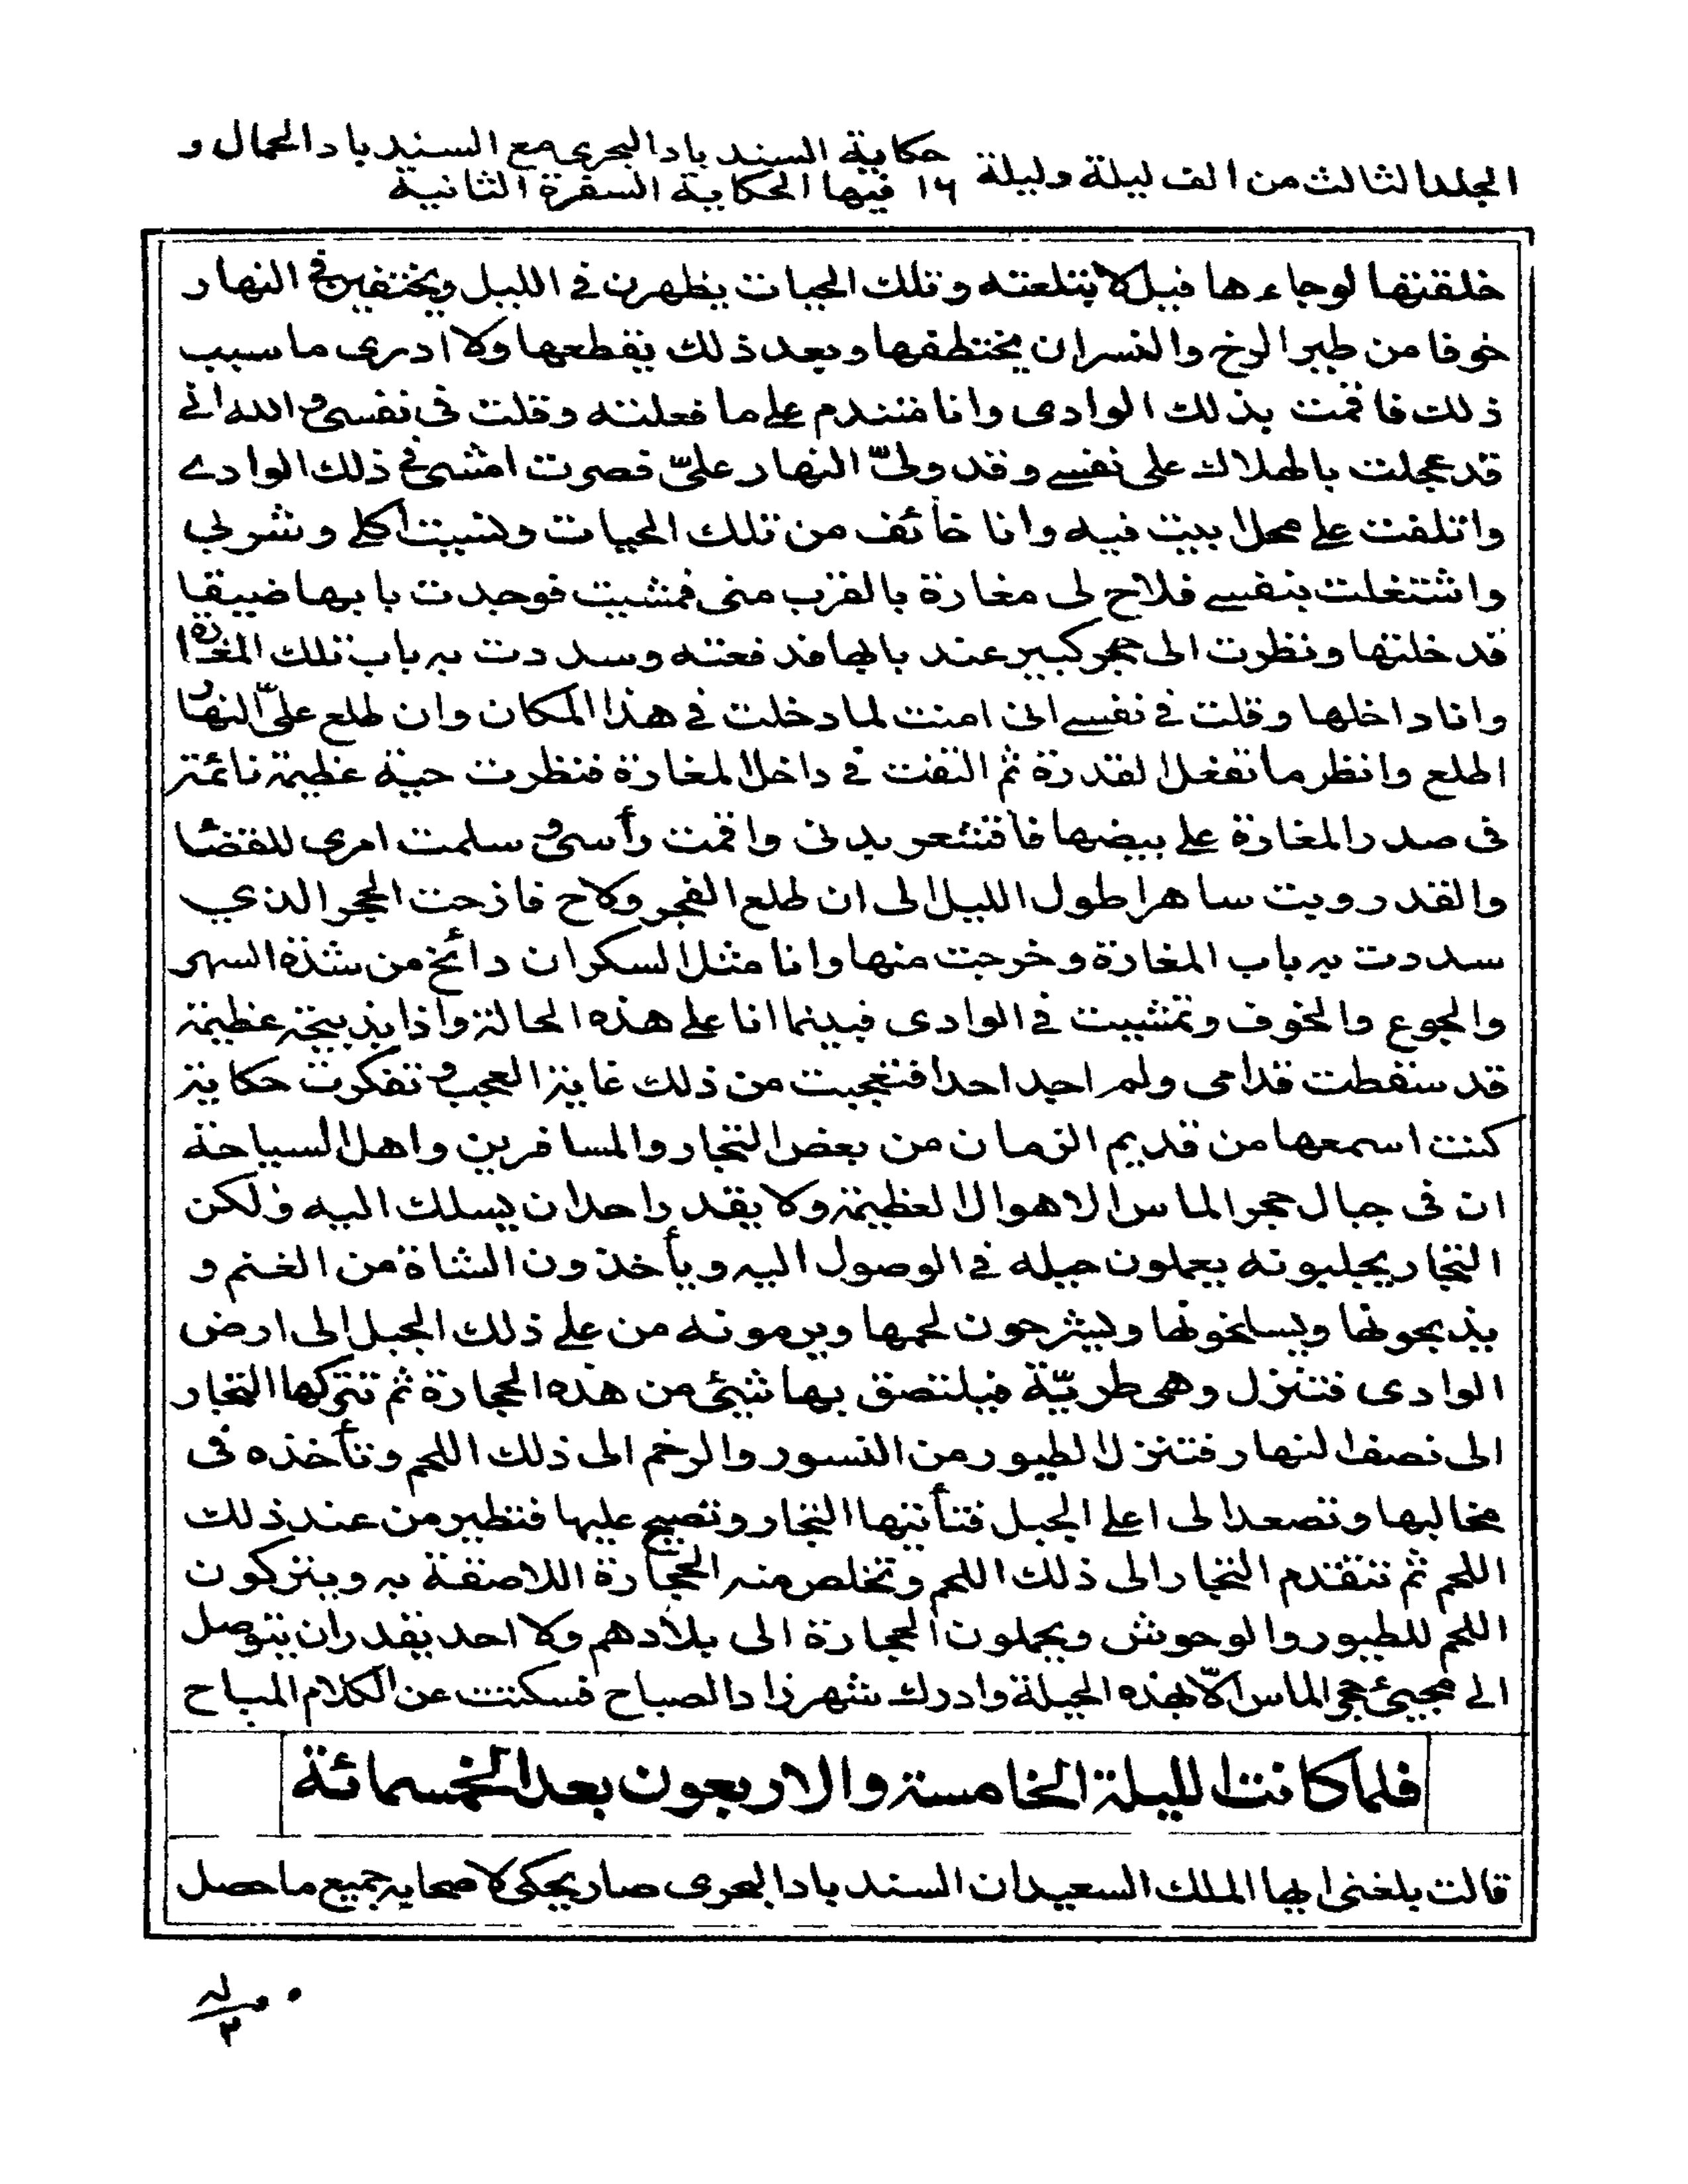 المجلد الثالث من الف ليلة وليلة
حكاية السندباد البحري مع السندباد الحمال و
١٦ فيها الحكاية السفرة الثانية
خلقتها لو جاءها فيل لابتلعته وتلك الحيات يظهرن في الليل ويختفين في النهار
خوفا من طير الرخ والنسران يختطفها وبعد ذلك يقطعها ولا ادرى ما سبب
ذلك فاقمت بذلك الوادى وانا متندم على ما فعلته وقلت فى نفسى والله انى
قد عجلت بالهلاك على نفسے وقد ولّى النهار علىّ فصرت امشى فى ذلك الوادے
واتلفت على محل ابيت فيه وانا خائف من تلك الحيات ونسيت اكلى وشربى
واشتغلت بنفسے فلاح لى مغارة بالقرب منى فمشيت فوجدت بابها ضيقا
فدخلتها ونظرت الى حجر كبير عند بابها فدفعته وسددت به باب تلك المغارة
وانا داخلها وقلت فى نفسے انى امنت لما دخلت فى هذا المكان وان طلع علىّ النهار
اطلع وانظر ما تفعل القدرة ثم التفت فى داخل المغارة فنظرت حية عظيمة نائمة
فى صدر المغارة على بيضها فاقشعر بدنى واقمت رأسى وسلمت امرى للقضا
والقدر وبت ساهرا طول الليل الى ان طلع الفجر ولاح فازحت الحجر الذي
سددت به باب المغارة وخرجت منها وانا مثل السكران دائخ من شدة السهر
والجوع والخوف وتمشيت فى الوادى فبينما انا على هذه الحالة واذا بذبيحة عظيمة
قد سقطت قدامى ولم اجد احدا فتعجبت من ذلك غاية العجب وتفكرت حكاية
كنت اسمعها من قديم الزمان من بعض التجار والمسافرين واهل السياحة
ان فى جبال حجر الماس الاهوال العظيمة ولا يقدر احد ان يسلك اليه ولكن
التجار يجلبونه يعملون حيله فى الوصول اليه ويأخذون الشاة من الغنم و
يذبحونها ويسلخونها ويشرحون لحمها ويرمونه من على ذلك الجبل الى ارض
الوادى فتنزل وهى طريّة فيلتصق بها شيئ من هذه الحجارة ثم تتركها التجار
الى نصف النهار فتنزل الطيور من النسور والرخم الى ذلك اللحم وتأخذه فى
مخالبها وتصعد الى اعلى الجبل فتأتيها التجار وتصيح عليها فتطير من عند ذلك
اللحم ثم تتقدم التجار الى ذلك اللحم وتخلص منه الحجارة اللاصقة به ويتركون
اللحم للطيور والوحوش ويحملون الحجارة الى بلادهم ولا احد يقدر ان يتوصل
الى مجيئ حجر الماس الّا بهذه الحيلة وادرك شهرزاد الصباح فسكتت عن الكلام المباح
فلما كانت الليلة الخامسة والاربعون بعد الخمسمائة
قالت بلغنى ايها الملك السعيد ان السندباد البحرى صار يحكى لاصحابه جميع ما حصل